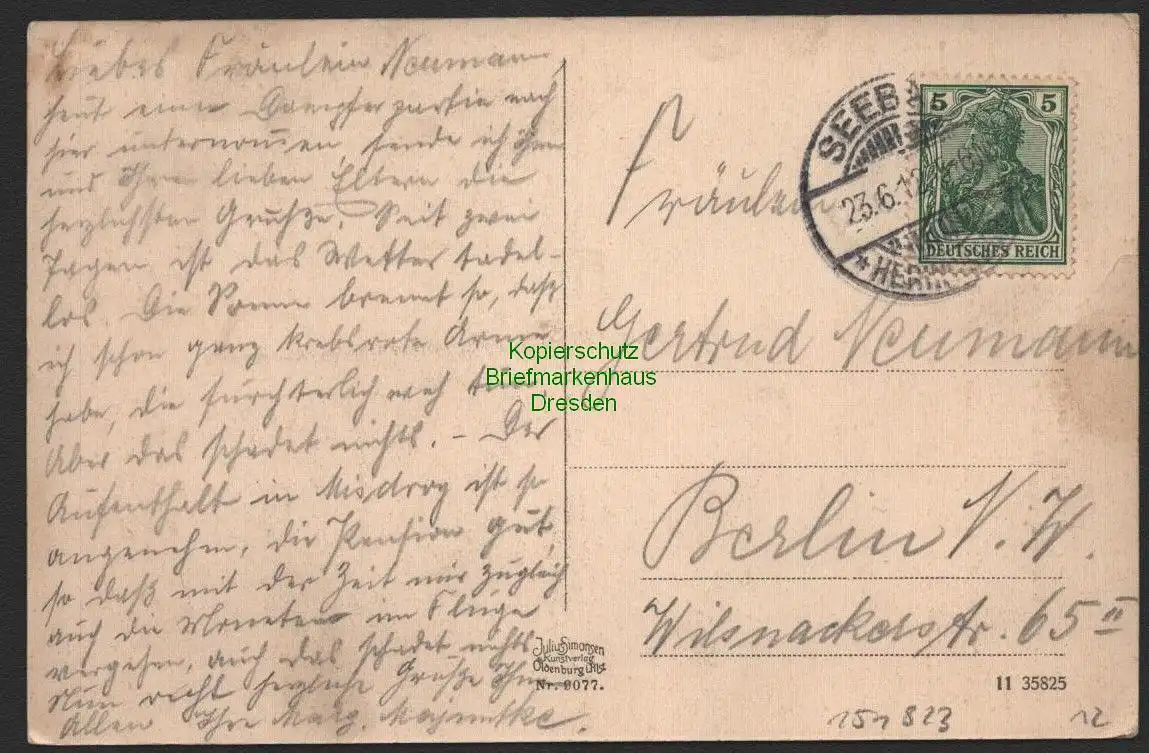 Liebes Fräulein Neumann,
heut eine Dampferpartie nach
hier unternommen, sende ich Ihnen
und Ihren lieben Eltern die
herzlichsten Grüße. Seit zwei
Tagen ist das Wetter tadel-
los. Die Sonne brennt so, daß
ich schon ganz krebsrote Arme
habe, die fürchterlich weh tun.
Aber das schadet nichts. – Der
Aufenthalt in Misdroy ist so
angenehm, die Pension gut,
so daß mit der Zeit mir zugleich
auch die Moneten im Fluge
vergehen, auch das schadet nichts.
Nun recht herzliche Grüße Ihnen
Allen Ihre Marg.
Fräulein
Gertrud Neumann
Berlin N.W.
Wilsnackerstr. 65 II
SEEB
23.6.1
HERIN
5 5
DEUTSCHES REICH
Kopierschutz
Briefmarkenhaus
Dresden
Julius Simonsen
Kunstverlag
Oldenburg i. Hlst
Nr. 9077.
11 35825
823
12